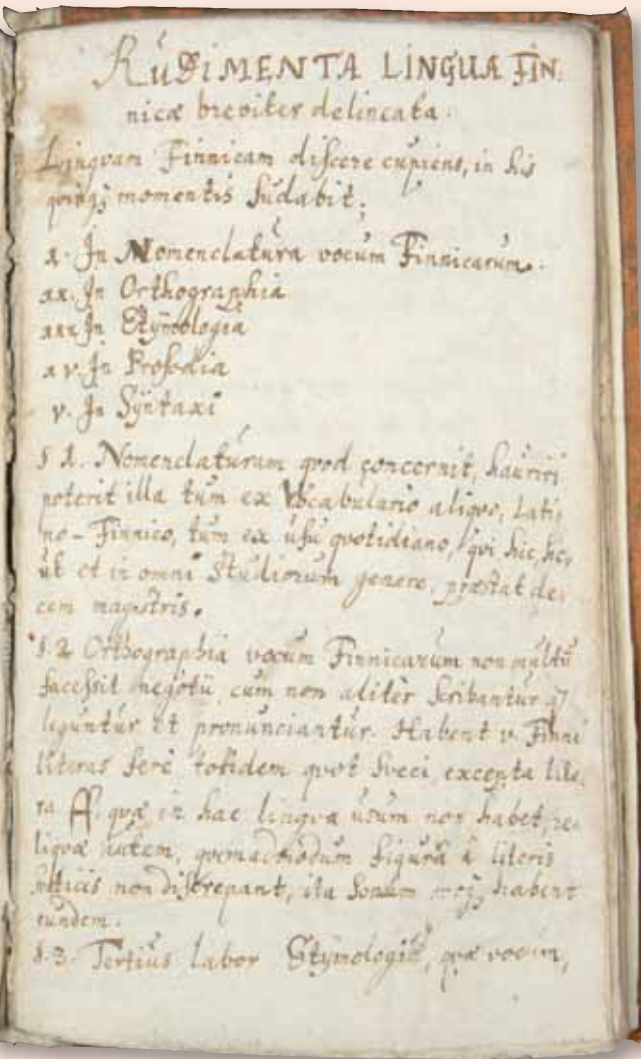 RUDIMENTA LINGUÆ FIN
nicæ breviter delineata.
Lingvam Finnicam discere cupiens, in his
momentis sudabit;
1. In Nomenclatura vocum Finnicarum.
11. In Orthographia
111. In Etÿmologia
1v. In Prosodia
v. In Sÿntaxi
§ 1. Nomenclaturam qvod concernit, hauriri
poterit illa tum ex Vocabulario aliqvo, Lati
no-Finnico, tum ex usu qvotidiano, qvi hic,
ut et in omni Studiorum genere, præstat de
cem magistris.
§. 2 Orthographia vocum Finnicarum non multũ
facessit negotii, cum non aliter scribantur
leguntur et pronunciantur. Habent v. Finni
literas ferè totidem qvot Sveci, excepta lite,
ra Å qvæ in hac lingva usum non habet, re
liqvæ autem, qvemadmodum figurâ â literis
non discrepant, ita sonum habent
eundem.
§. 3. Tertius labor Etÿmologiæ, qvæ vocum,